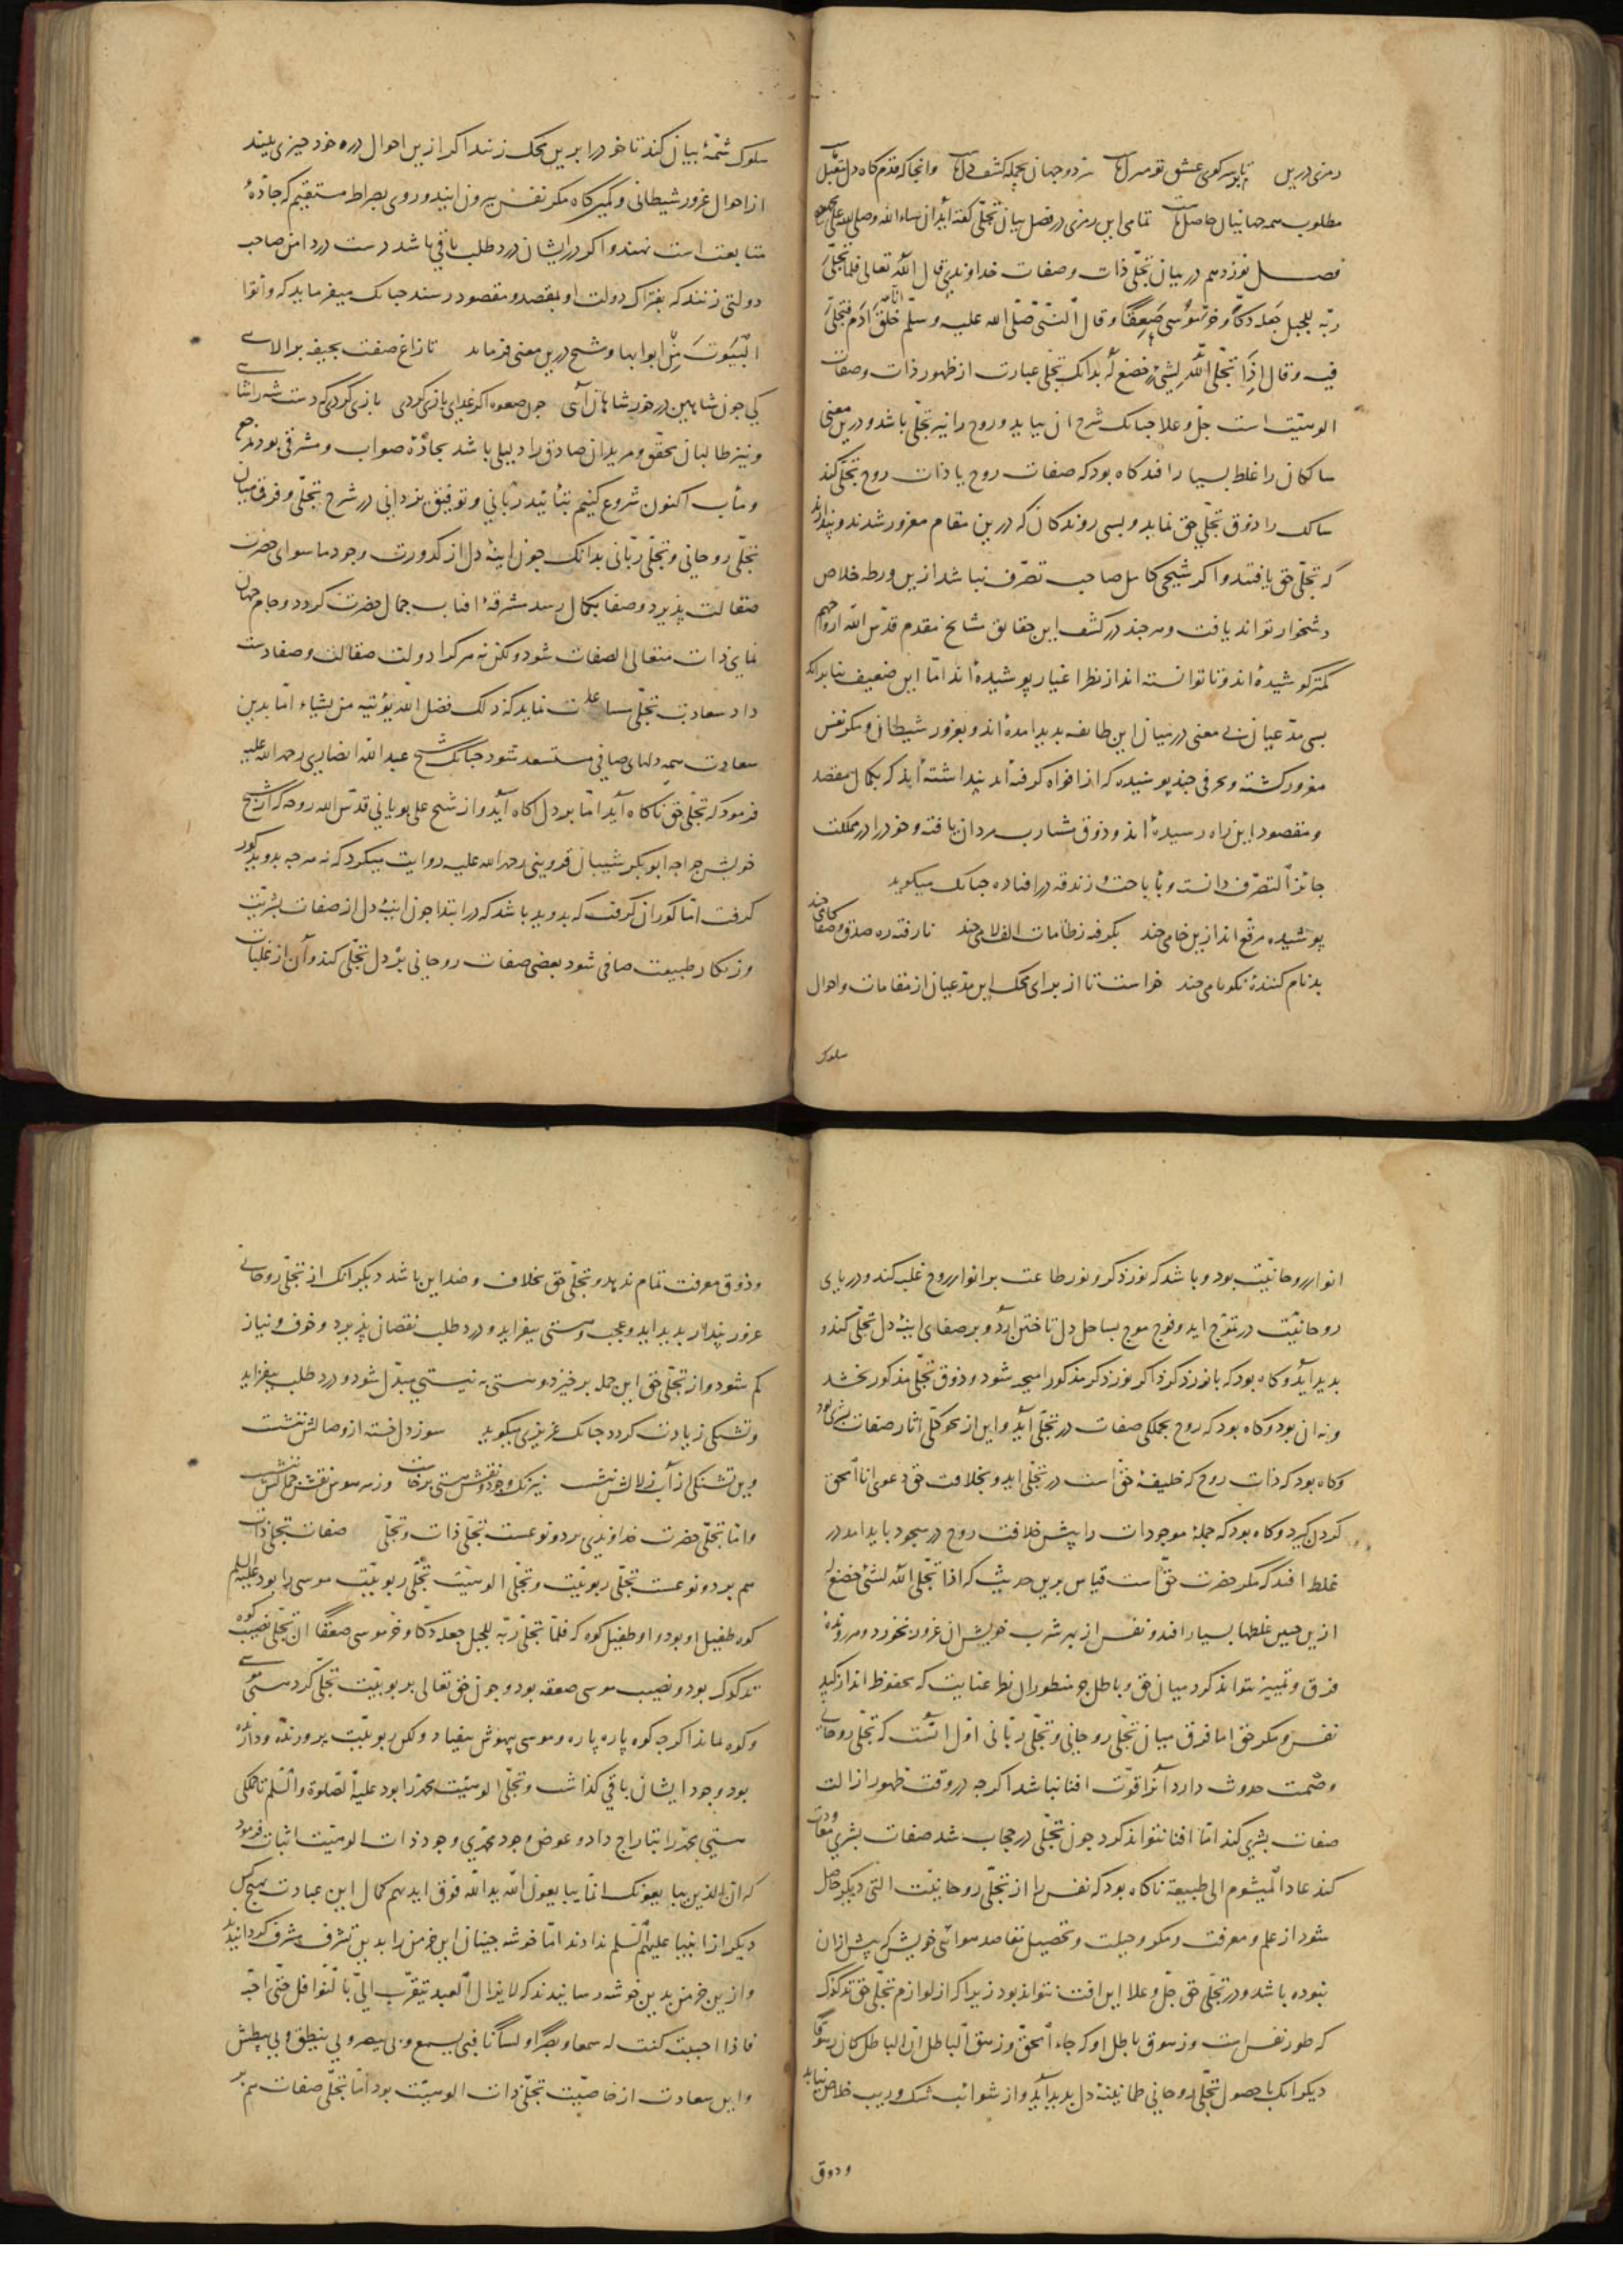 رمزی درین تا بر سر کوی عشق تو منزل ماست سر دو جهان بجمله کشف دل ماست وانجا که قدمگاه دل مقبل ماست
مطلوب همه جهانیان حاصل ماست تمامی این رمزی در فصل بیان تجلی گفته آید ان شاء الله وصلی الله علی محمد
فصل نوزدهم در بیان تجلی ذات و صفات خداوندی قال الله تعالی فلما تجلی
ربه للجبل جعله دکا و خر موسی صعقا وقال النبی صلی الله علیه وسلم ان الله خلق ادم فتجلی
فیه وقال اذا تجلی الله لشیء خضع له بدانک تجلی عبارت از ظهور ذات وصفات
الوهیت است جل و علا چنانک شرح ان بیاید و روح را نیز تجلی باشد و درین معنی
سالکان را غلط بسیار افتد گاه بود که صفات روح یا ذات روح تجلی کند
سالک را ذوق تجلی حق نماید و بسی روندگان که درین مقام مغرور شدند و پندارند
که تجلی حق یافتند و اگر شیخی کامل صاحب تصرف نباشد ازین ورطه خلاص
دشخوار تواند یافت و هر چند در کشف این حقایق مشایخ متقدم قدس الله ارواحهم
کمتر کوشیده‌اند و تا توانسته‌اند از نظر اغیار پوشیده‌اند اما این ضعیف بنا بر آنک
بسی مدعیان بی معنی در میان این طایفه پدید امده‌اند و بغرور شیطان و مکر نفس
مغرور گشته و حرفی چند پوسیده که از افواه گرفته‌اند پنداشته‌اند که بکمال مقصد
و مقصود این راه رسیده‌اند و ذوق مشارب مردان یافته و خود را در مملکت
جائز التصرف دانسته و باباحت و زندقه در افتاده چنانک میگوید
پوشیده مرقع‌اند ازین خامی چند بگرفته ز طامات الف لامی چند نارفته ره صدق و صفا گامی چند
بدنام کننده نکونامی چند خواست تا از برای محک این مدعیان از مقامات و احوال
سلوک
سلوک شمهٔ بیان کند تا خود را برین محک زنند اگر ازین احوال در ره خود چیزی بینند
از احوال غرور شیطانی و کمینگاه مکر نفس بیرون ایند و روی بصراط مستقیم که جادهٔ
متابعت است نهند و اگر در ایشان درد طلب باقی باشد دست در دامن صاحب
دولتی زنند که بفتراک دولت او بمقصد و مقصود رسند چنانک میفرماید که واتوا
البیوت من ابوابها و شیخ درین معنی فرماید تا زاغ صفت بجیفه بر الایی
کی چون شاهین در خور شاهان آیی چون صعوه اگر غدای بازی گردی بازی گردی که دست شه را شایی
و نیز طالبان محقق و مریدان صادق را دلیلی باشد بجادهٔ صواب و مشرفی بود بمرجع
و مآب اکنون شروع کنیم بتأئید ربانی و توفیق یزدانی در شرح تجلی و فرق میان
تجلی روحانی و تجلی ربانی بدانک چون اینهٔ دل از کدورت وجود ما سوای حضرت
صقالت پذیرد و صفا بکمال رسد مشرقهٔ افتاب جمال حضرت گردد و جام جهان
نمای ذات متعالی الصفات شود ولکن نه هر کرا دولت صقالت و صفا دست
داد سعادت تجلی مساعدت نماید که ذلک فضل الله یؤتیه من یشاء اما بدین
سعادت همه دلهای صافی مستسعد شود چنانک شیخ عبد الله انصاری رحمه الله علیه
فرمود که تجلی حق ناگاه آید اما بر دل اگاه آید و از شیخ علی بویانی قدس الله روحه که از شیخ
خویش خواجه ابوبکر شیبان قزوینی رحمه الله علیه روایت میکرد که نه هر چه بدوید گور
گرفت اما گور ان گرفت که بدوید باشد که در ابتدا چون اینهٔ دل از صفات بشریت
و زنگار طبیعت صافی شود بعضی صفات روحانی بر دل تجلی کند و آن از غلبات
انوار روحانیت بود و باشد که نور ذکر و نور طاعت بر انوار روح غلبه کند و دریای
روحانیت در تموج اید و فوج موج بساحل دل تاختن آرد و بر صفای اینهٔ دل تجلی کند و
بدید آید و گاه بود که با نور ذکر ذاکر نور ذکر مذکور امیخته شود و ذوق تجلی مذکور بخشد
و نه ان بود و گاه بود که روح بجملگی صفات در تجلی آید و این از محو کلی اثار صفات بشری بود
و گاه بود که ذات روح که خلیفهٔ حق است در تجلی اید و بخلافت حق دعوی انا الحق
کردن گیرد و گاه بود که جملهٔ موجودات را پیش خلافت روح در سجود یابد امد در
غلط افتد که مگر حضرت حق است قیاس برین حدیث که اذا تجلی الله لشیء خضع له
ازین جنس غلطها بسیار افتد و نفس از بهر شرب خویش ان غرور بخورد و هر رونده
فرق و تمییز نتواند کرد میان حق و باطل جز منظوران نظر عنایت که محفوظ‌اند از کید
نفس و مکر حق اما فرق میان تجلی روحانی و تجلی ربانی اول انست که تجلی روحانی
وصمت حدوث دارد آنرا قوت افنا نباشد اگر چه در وقت ظهور ازالت
صفات بشری کند اما افنا نتواند کرد چون تجلی در حجاب شد صفات بشری معاودت
کند عاد المیشوم الی طبیعته ناگاه بود که نفس را از تجلی روحانیت التی دیگر حاصل
شود از علم و معرفت و مکر و حیلت و تحصیل مقاصد هوائی خویش که پیش ازان
نبوده باشد و در تجلی حق جل و علا این افت نتواند بود زیرا که از لوازم تجلی حق تدکدک
که طور نفس است و زهوق باطل او که جاء الحق و زهق الباطل ان الباطل کان زهوقا
دیگر انک با حصول تجلی روحانی طمانینهٔ دل بدید آید و از شوائب شک و ریب خلاص نیابد
و ذوق
و ذوق معرفت تمام ندهد و تجلی حق بخلاف و ضد این باشد دیگر انک از تجلی روحانی
غرور پندار پدید اید و عجب و هستی بیفزاید و درد طلب نقصان پذیرد و خوف و نیاز
کم شود و از تجلی حق این جمله بر خیزد و هستی به نیستی مبدل شود و درد طلب بیفزاید
و تشنگی زیادت گردد چنانک عزیزی میگوید سوز دل خسته از وصالش ننشست
وین تشنگی از آب زلالش ننشست نیرنگ وجود و نقش هستی برخاست وز سر هوس نقش جمالش ننشست
و اما تجلی حضرت خداوندی بر دو نوعست تجلی ذات و تجلی صفات تجلی ذات
هم بر دو نوعست تجلی ربوبیت و تجلی الوهیت تجلی ربوبیت موسی را بود علیه السلم
کوه طفیل او بود و او طفیل کوه که فلما تجلی ربه للجبل جعله دکا و خر موسی صعقا ان تجلی نصیب کوه
تدکدک بود و نصیب موسی صعقه بود و چون حق تعالی بربوبیت تجلی کرد هستی موسی
و کوه نماند اگر چه کوه پاره پاره و موسی بیهوش بیفتاد ولکن ربوبیت پرورنده و دارنده
بود وجود ایشان باقی گذاشت و تجلی الوهیت محمد را بود علیه الصلوة والسلم تا جملگی
هستی محمد را بتاراج داد و عوض وجود محمدی وجود ذات الوهیت اثبات فرمود
که ان الذین یبایعونک انما یبایعون الله ید الله فوق ایدیهم کمال این عبادت بهیچ کس
دیگر از انبیا علیهم السلم ندادند اما خوشه چینان این خرمن را بدین تشرف مشرف گردانیدند
و ازین خرمن بدین خوشه رسانیدند که لا یزال العبد یتقرب الی بالنوافل حتی احبه
فاذا احببته کنت له سمعا و بصرا و لسانا فبی یسمع و بی یبصر و بی ینطق و بی یبطش
و این سعادت از خاصیت تجلی ذات الوهیت بود اما تجلی صفات هم بر